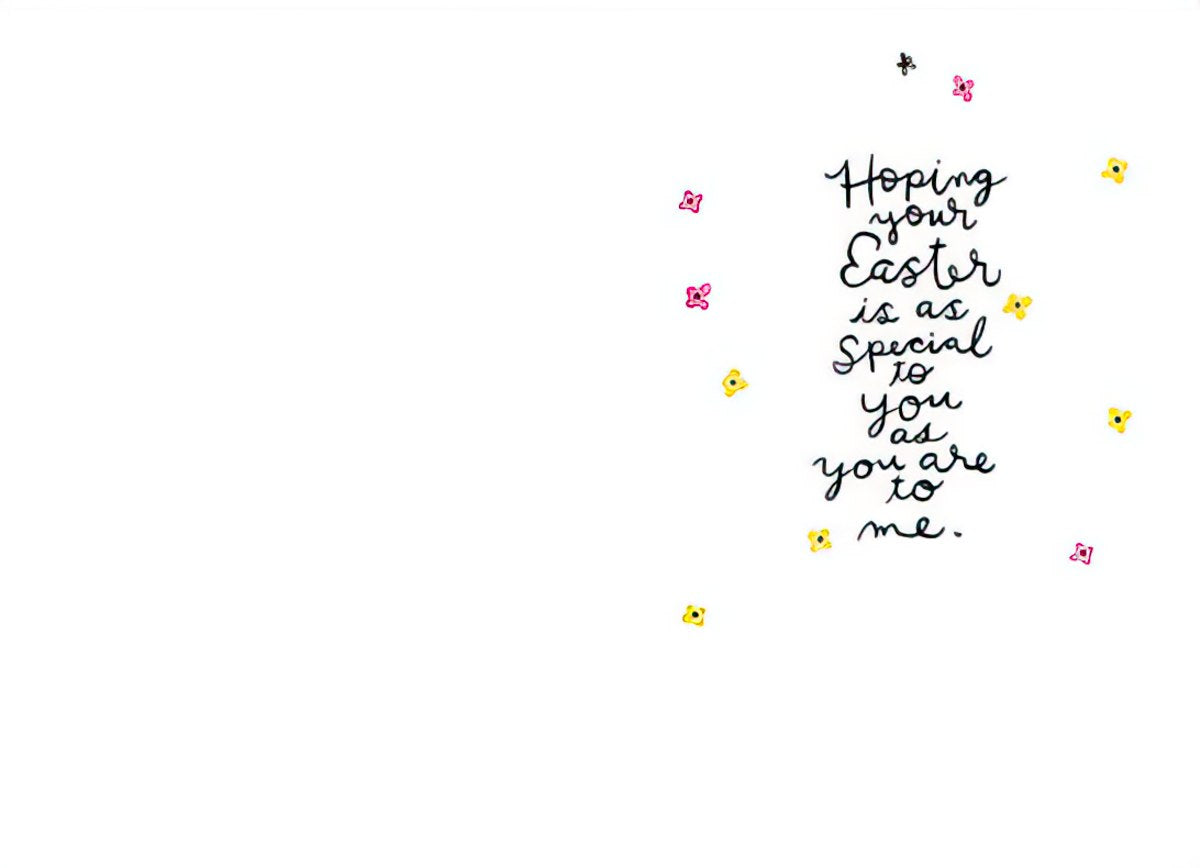 Hoping
your
Easter
is as
special
to
you
as
you are
to
me.